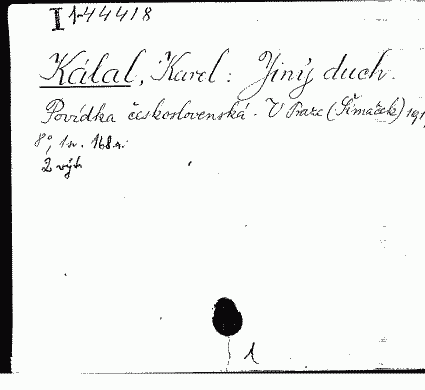 I 1-44418
Kálal, Karel: Jiný duch.
Povídka československá. V Praze (Šimáček) 191
8°, 1 sv. 168 s.
2 výt
1